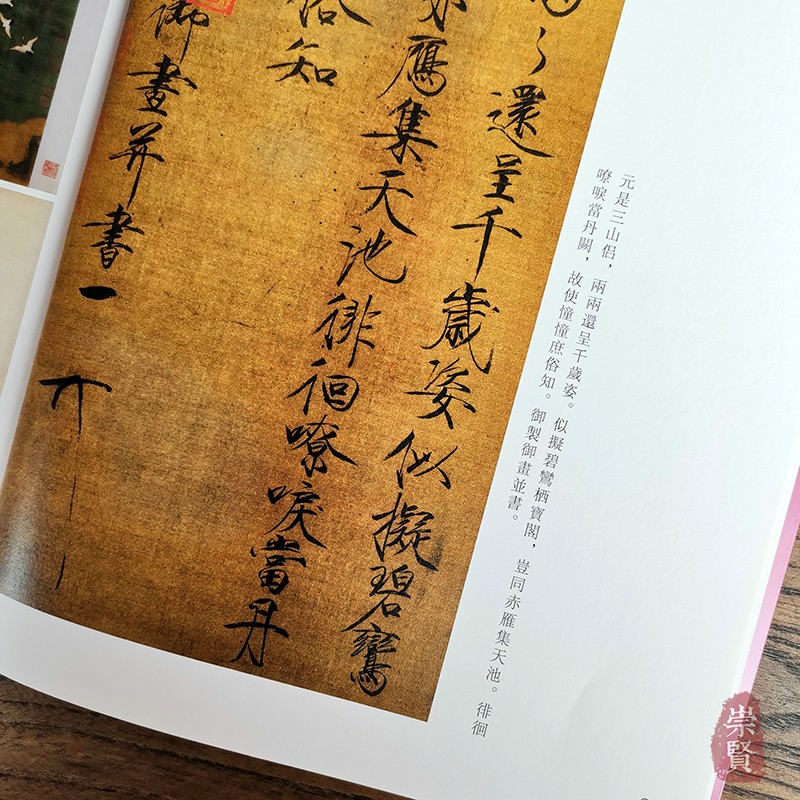 還呈千歲姿似擬碧鸞
鴈集天池徘徊嘹唳當丹
俗知
御畫并書
元是三山侶，兩兩還呈千歲姿。似擬碧鸞栖寶閣，豈同赤雁集天池。徘徊
嘹唳當丹闕，故使憧憧庶俗知。御製御畫並書。
崇賢